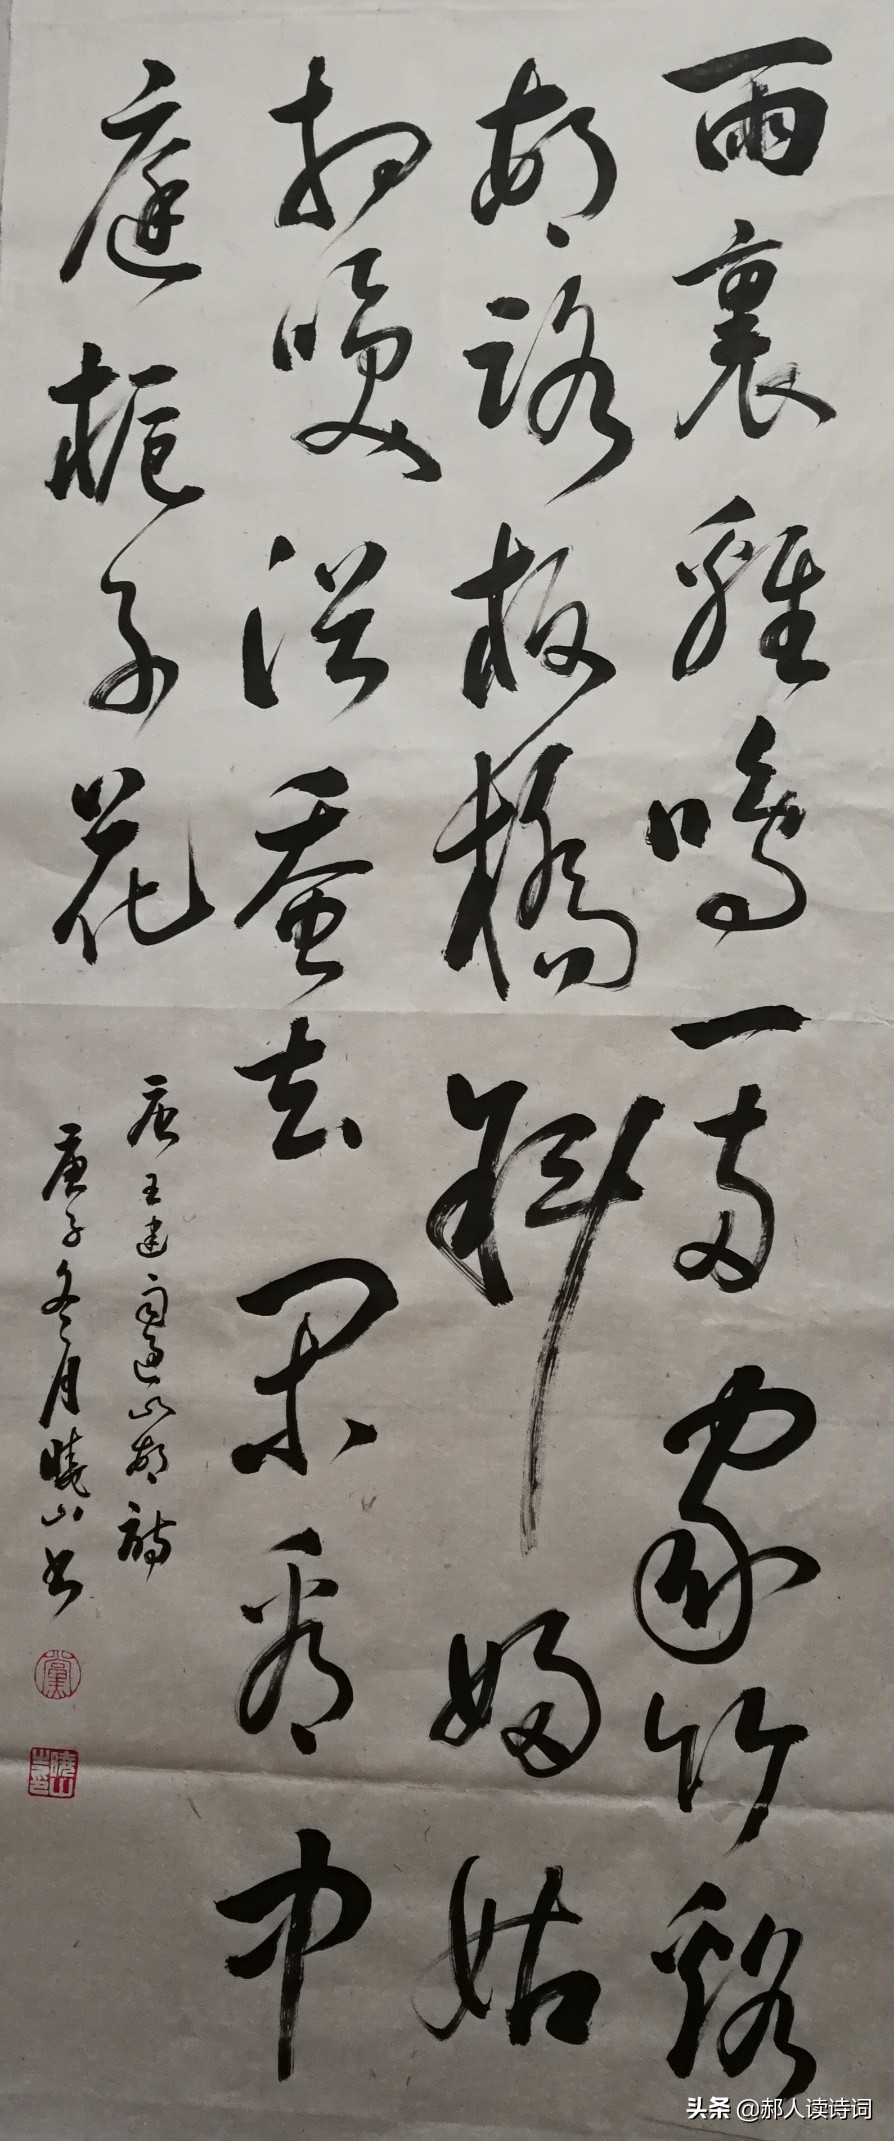 雨裏雞鳴一兩家竹谿
邨路板橋斜婦姑
相喚浴蚕去閑看中
庭梔子花
唐王建雨過山邨詩
庚子冬月曉山書
黨
頭条 @郝人读诗词